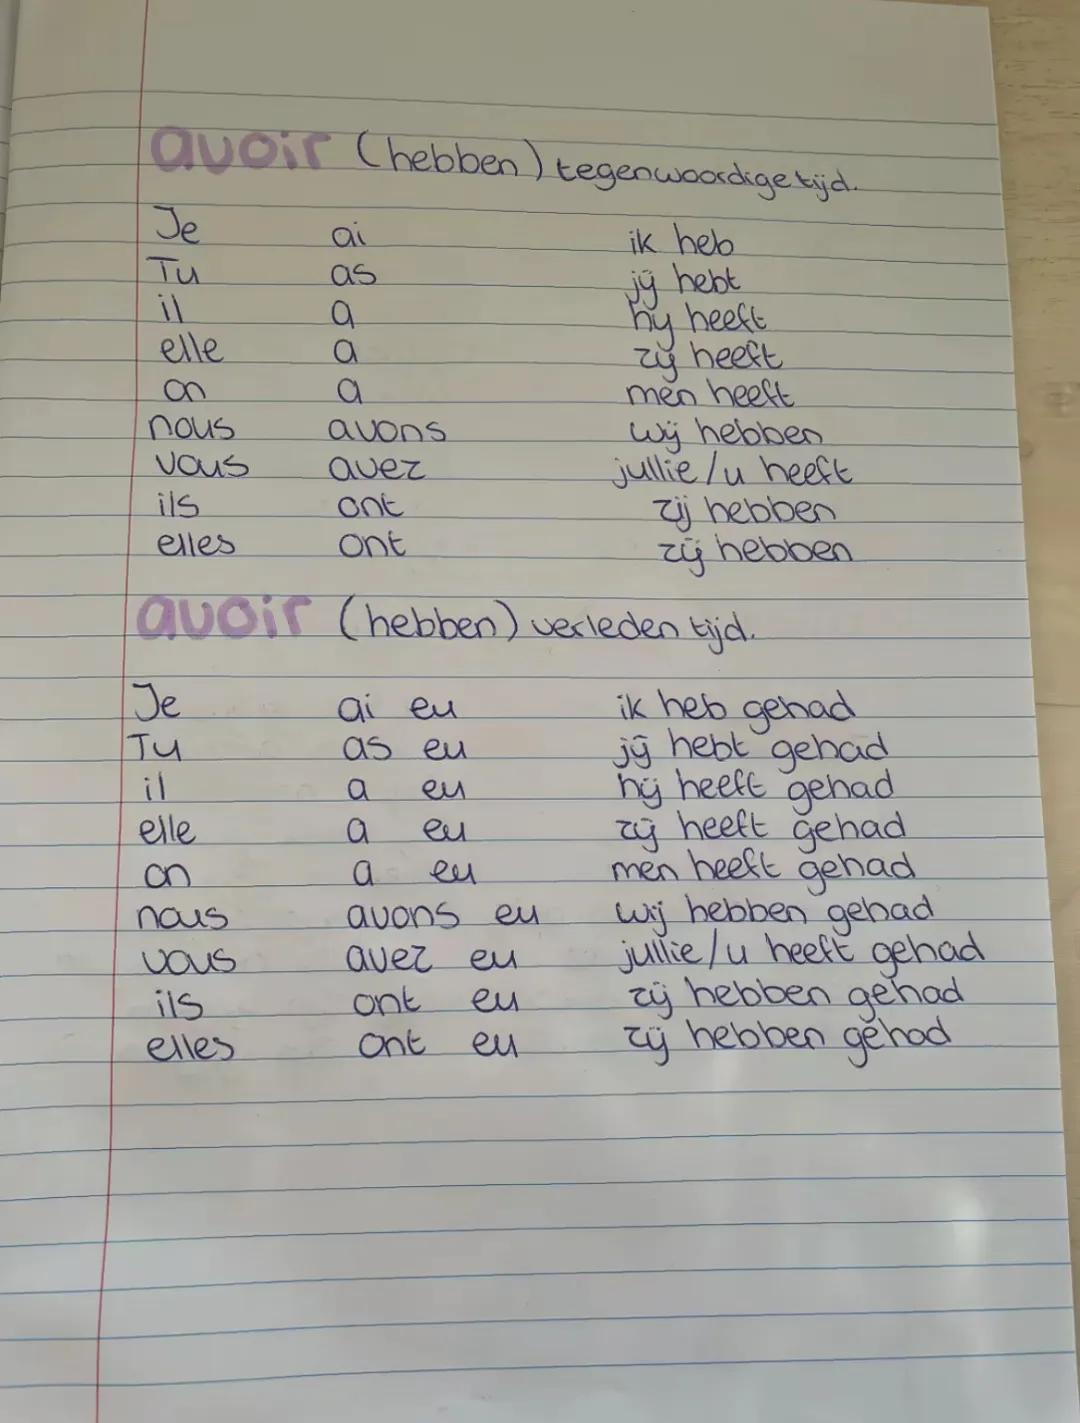 avoir (hebben) tegenwoordige tijd.
Je ai ik heb
Tu as jij hebt
il a hij heeft
elle a zij heeft
on a men heeft
nous avons wij hebben
vous avez jullie/u heeft
ils ont zij hebben
elles ont zij hebben
avoir (hebben) verleden tijd.
Je ai eu ik heb gehad
Tu as eu jij hebt gehad
il a eu hij heeft gehad
elle a eu zij heeft gehad
on a eu men heeft gehad
nous avons eu wij hebben gehad
vous avez eu jullie/u heeft gehad
ils ont eu zij hebben gehad
elles ont eu zij hebben gehad